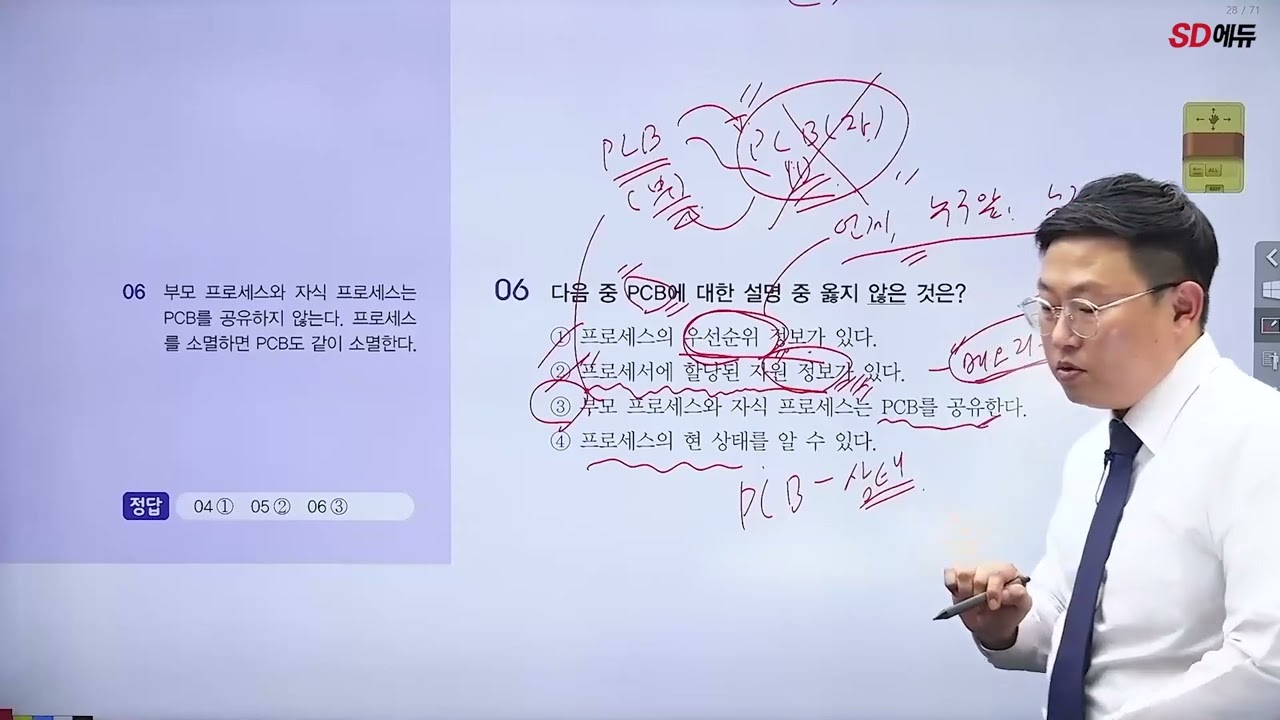 28 / 71
SD에듀
PCB
(부)
PCB(자)
언제, 누구랑,
06 부모 프로세스와 자식 프로세스는
PCB를 공유하지 않는다. 프로세스
를 소멸하면 PCB도 같이 소멸한다.
정답 04 ① 05 ② 06 ③
06 다음 중 PCB에 대한 설명 중 옳지 않은 것은?
① 프로세스의 우선순위 정보가 있다.
② 프로세서에 할당된 자원 정보가 있다.
③ 부모 프로세스와 자식 프로세스는 PCB를 공유한다.
④ 프로세스의 현 상태를 알 수 있다.
PCB - 상태
ALL
EXIT